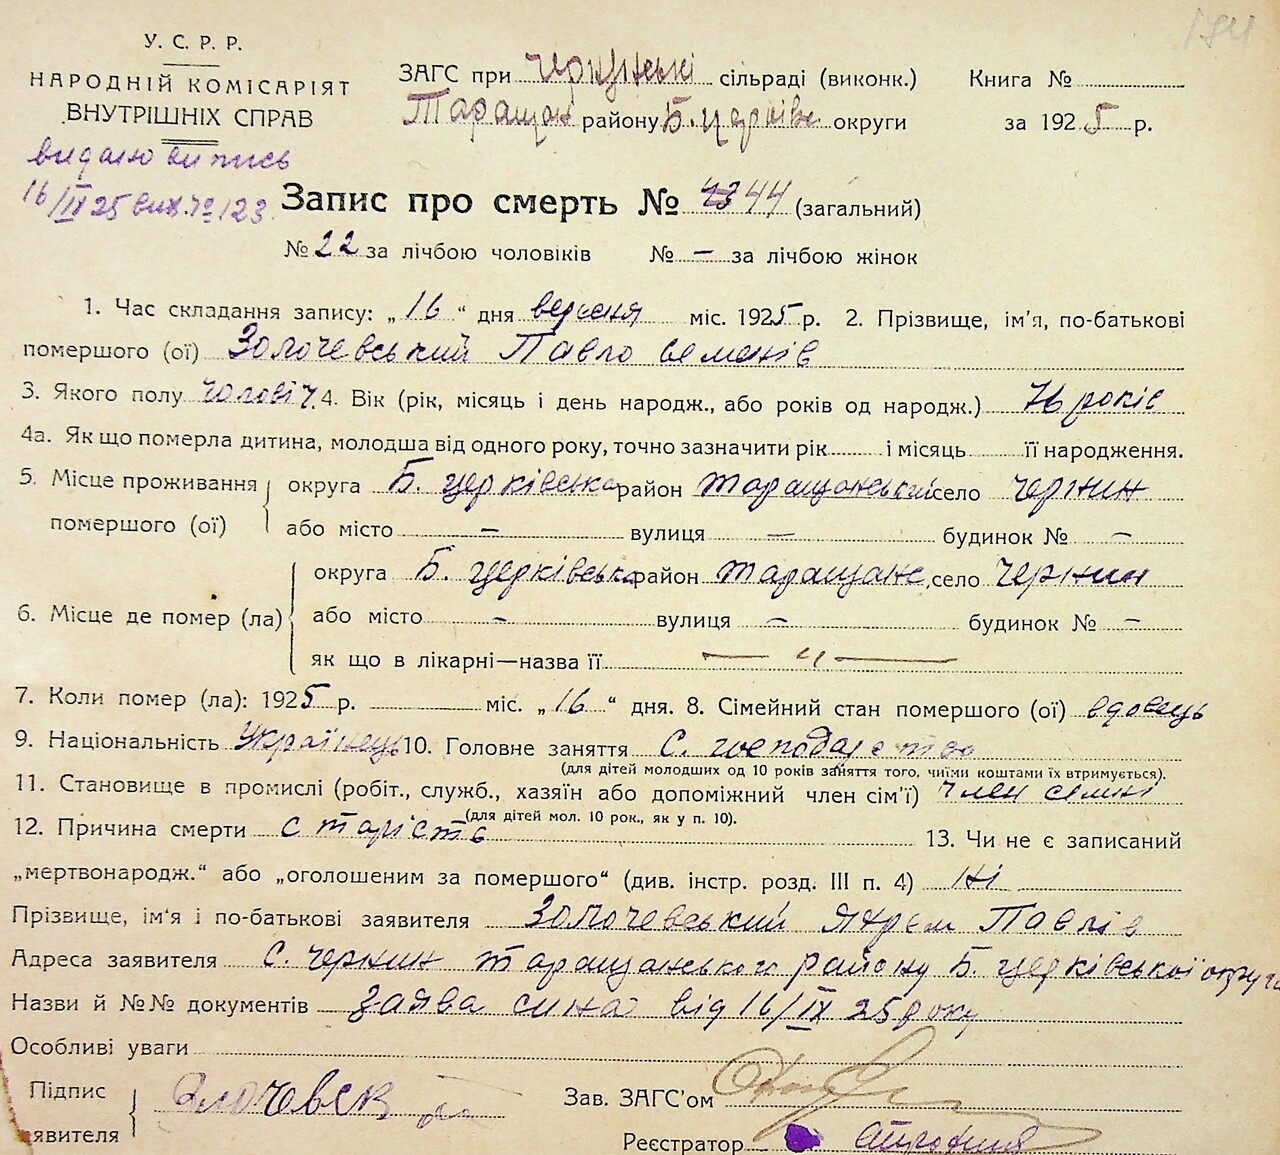 У. С. Р. Р.
НАРОДНІЙ КОМІСАРІЯТ
ВНУТРІШНІХ СПРАВ
видано випись
16/IX 25 вих. № 123
ЗАГС при сільраді (виконк.)
Таращан району Б. церківс округи
Книга №
за 1925 р.
Запис про смерть № 44 (загальний)
№ 22 за лічбою чоловіків № — за лічбою жінок
1. Час складання запису: „16“ дня вересня міс. 1925 р. 2. Прізвище, ім'я, по-батькові
помершого (ої) Золочевський Павло Семенів
3. Якого полу чоловіч. 4. Вік (рік, місяць і день народж., або років од народж.) 76 років
4а. Як що померла дитина, молодша від одного року, точно зазначити рік і місяць її народження.
5. Місце проживання помершого (ої) округа Б. церківська район Таращанський село Чернин
або місто — вулиця — будинок № —
6. Місце де помер (ла) округа Б. Церківська район Таращанс. село Чернин
або місто — вулиця — будинок № —
як що в лікарні—назва її — „ —
7. Коли помер (ла): 1925 р. міс. „16“ дня. 8. Сімейний стан помершого (ої) вдовець
9. Національність Українець 10. Головне заняття С. господарство
(для дітей молодших од 10 років заняття того, чиїми коштами їх втримується).
11. Становище в промислі (робіт., служб., хазяїн або допоміжний член сім'ї) член семні
(для дітей мол. 10 рок., як у п. 10).
12. Причина смерти старість 13. Чи не є записаний
„мертвонародж.“ або „оголошеним за помершого“ (див. інстр. розд. III п. 4) Ні
Прізвище, ім'я і по-батькові заявителя Золочевський Яхрем Павлів
Адреса заявителя с. Чернин Таращанського району Б. церківської округи
Назви й №№ документів Заява сина від 16/IX 25 року
Особливі уваги
Підпис
явителя
Зав. ЗАГС'ом
Реєстратор